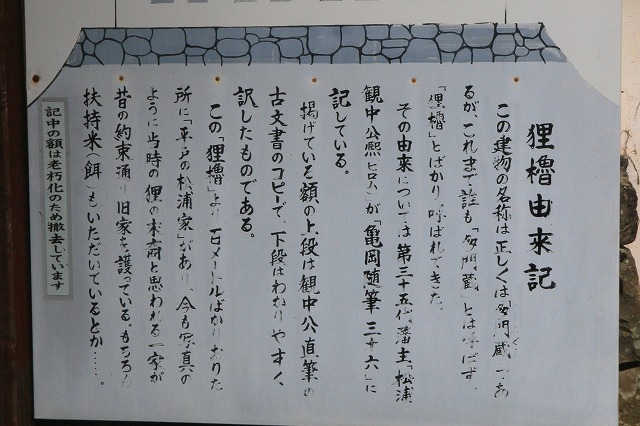 狸櫓由来記
この建物の名称は正しくは「多門蔵」であ
るが、これまで誰も「多門蔵」とは呼ばず、
「狸櫓」とばかり呼ばれてきた。
その由来については第三十五代藩主「松浦
観中公熙ヒロム」が「亀岡随筆 三十六」に
記している。
掲げている額の上段は観中公直筆の
古文書のコピーで、下段はわかりやすく、
訳したものである。
この「狸櫓」より百メートルばかりおりた
所に「平戸の松浦家」があり、今も写真の
ように当時の狸の末裔と思われる一家が
昔の約束通り旧家を護っている。もちろん
扶持米(餌)もいただいているとか……。
記中の額は老朽化のため撤去しています